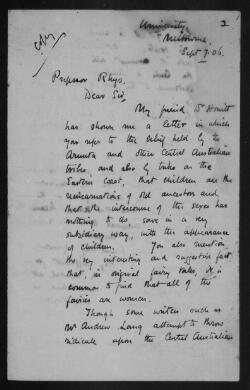 Copy
2
University
Melbourne
Sept 7. 06.
Professor Rhys,
Dear Sir,
My friend Dr Howitt
has shown me a letter in which
you refer to the belief held by the
Arunta and other Central Australian
tribes, and also by tribes on the
Eastern coast, that children are the
reincarnations of old ancestors and
that the intercourse of the sexes has
nothing to do, save in a very
subsidiary way, with the appearance
of children. You also mention
the very interesting and suggestive fact
that, in original fairy tales, it is
common to find that all of the
fairies are women.
Though some writers such as
Mr Andrew Lang attempt to throw
ridicule upon the Central Australian